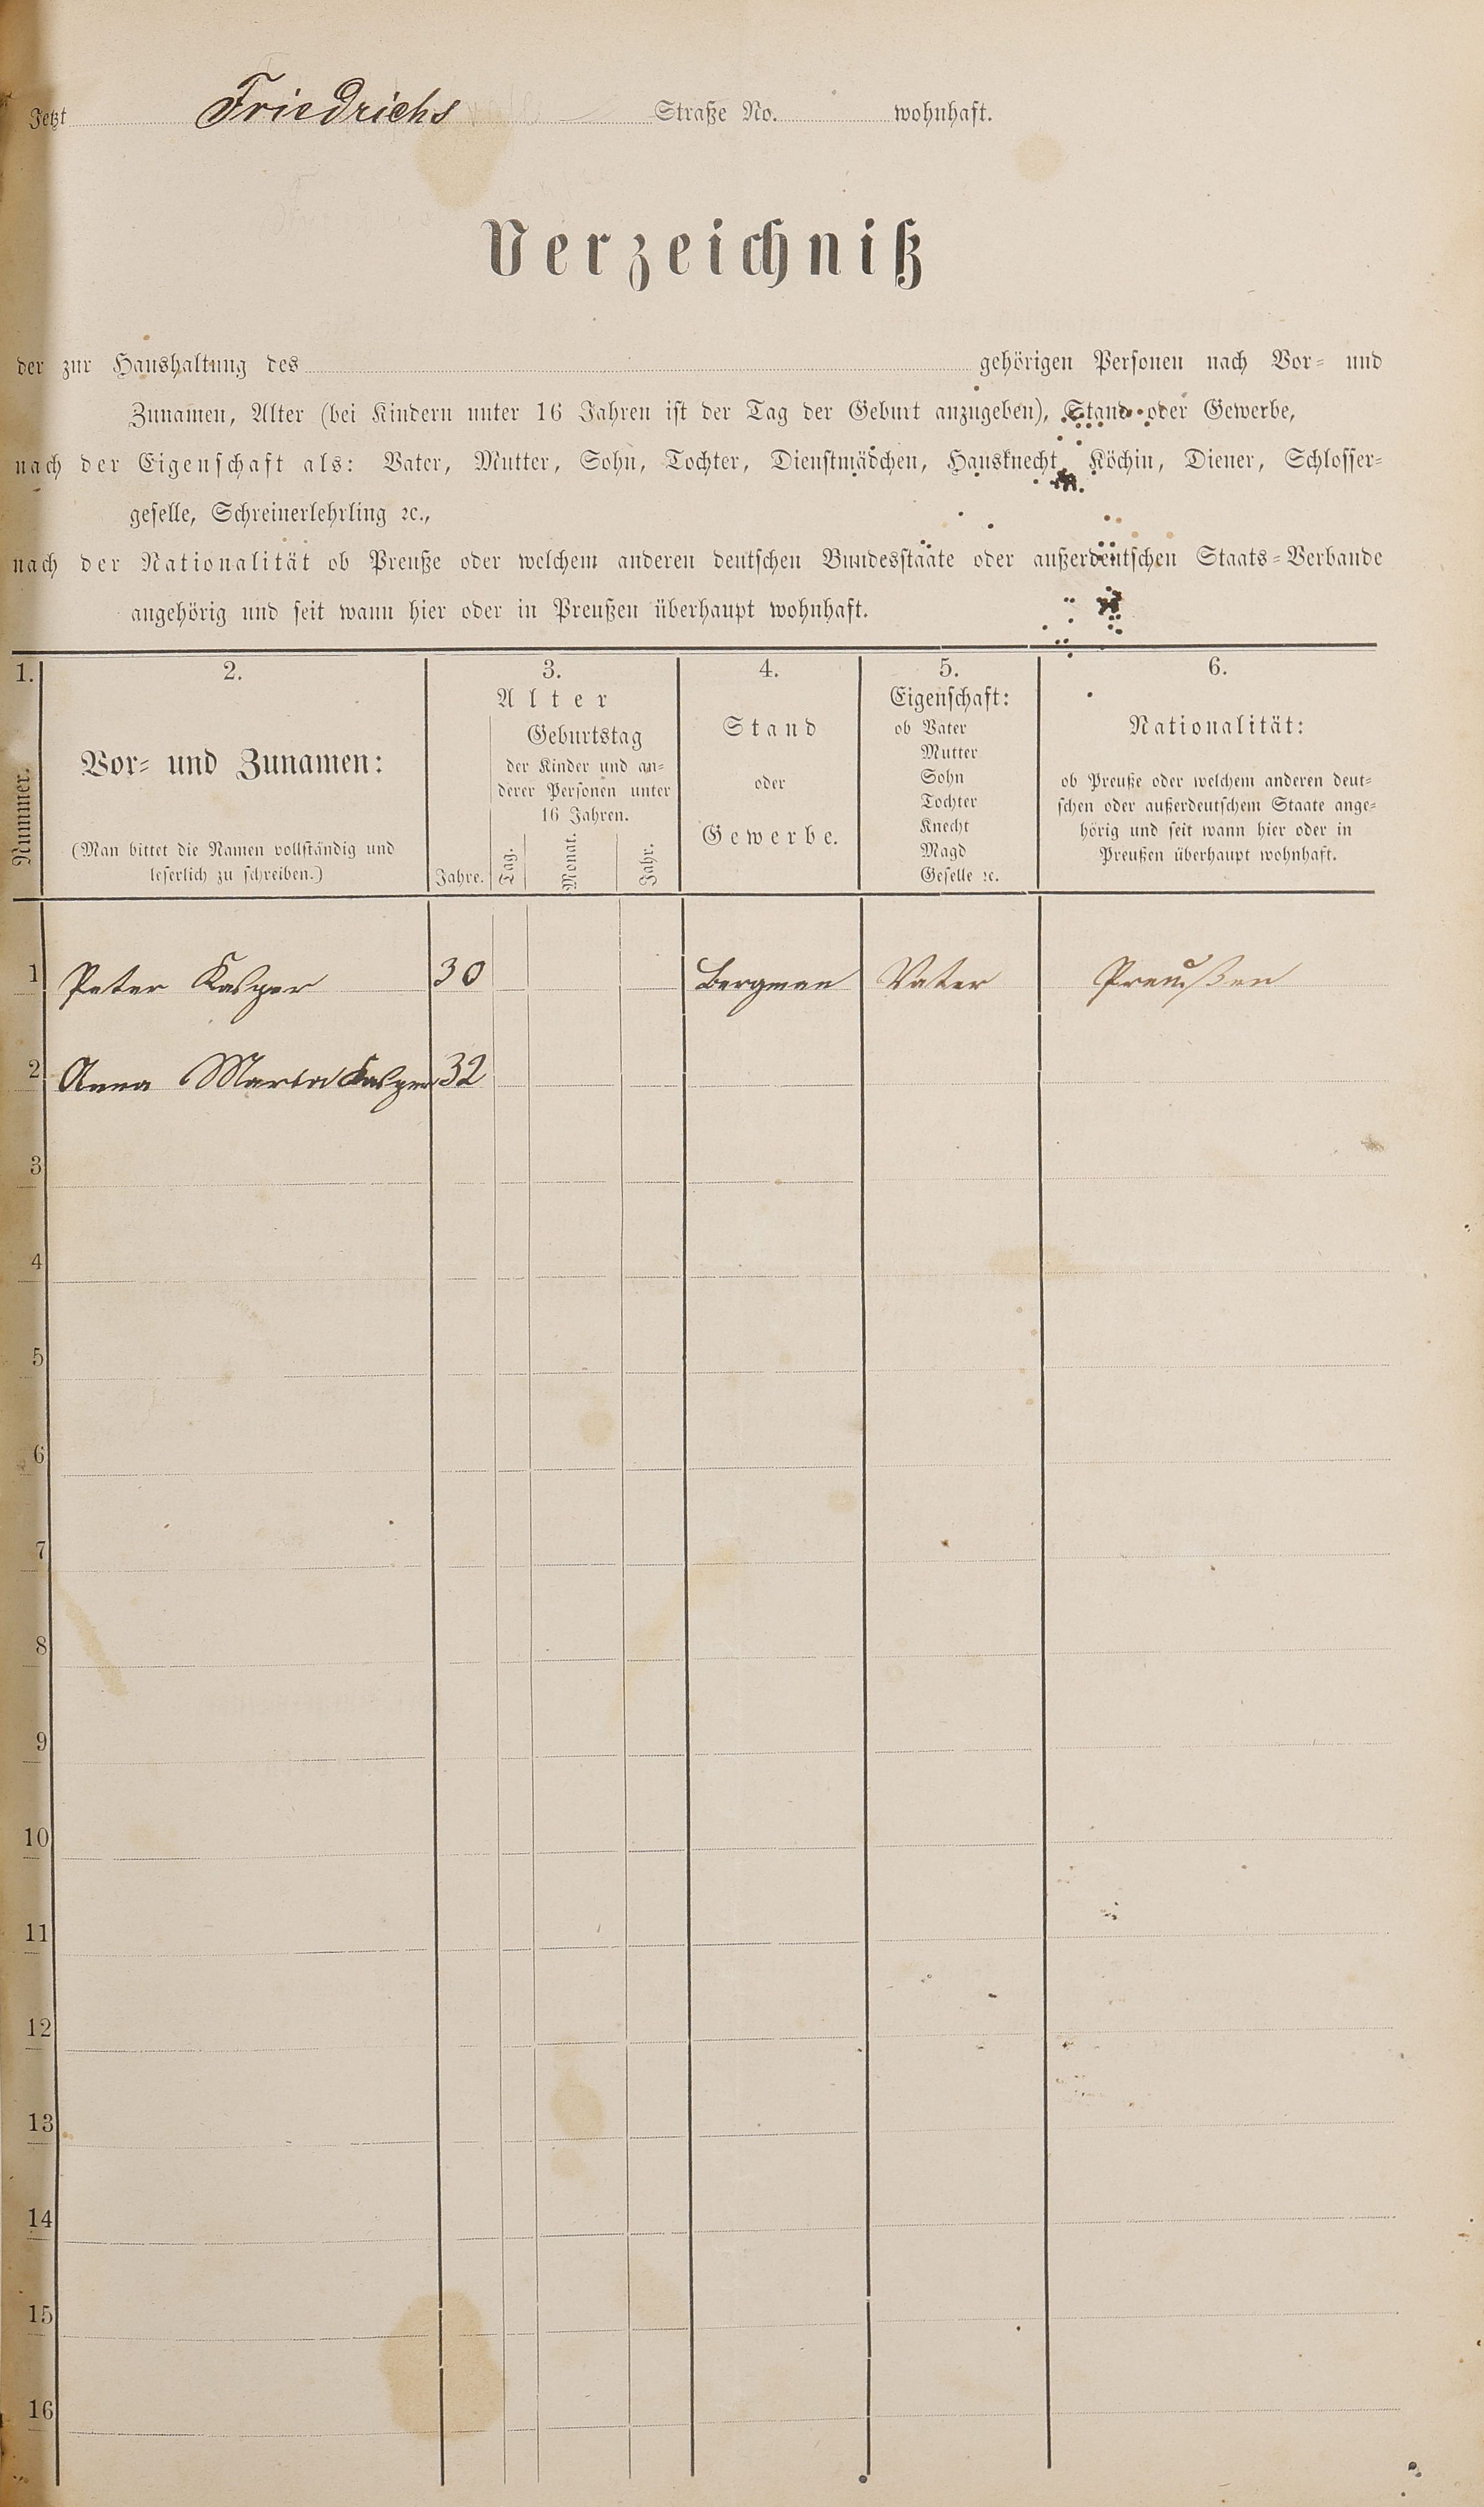 Jetzt Friedrichs Straße No. wohnhaft.
Verzeichniß
der zur Haushaltung des gehörigen Personen nach Vor- und
Zunamen, Alter (bei Kindern unter 16 Jahren ist der Tag der Geburt anzugeben), Stand oder Gewerbe,
nach der Eigenschaft als: Vater, Mutter, Sohn, Tochter, Dienstmädchen, Hausknecht, Köchin, Diener, Schlosser-
geselle, Schreinerlehrling ꝛc.,
nach der Nationalität ob Preuße oder welchem anderen deutschen Bundesstaate oder außerdeutschen Staats-Verbande
angehörig und seit wann hier oder in Preußen überhaupt wohnhaft.
1.
Nummer.
2.
Vor- und Zunamen:
(Man bittet die Namen vollständig und
leserlich zu schreiben.)
3.
Alter
Jahre.
Geburtstag
der Kinder und an-
derer Personen unter
16 Jahren.
Tag.
Monat.
Jahr.
4.
Stand
oder
Gewerbe.
5.
Eigenschaft:
ob Vater
Mutter
Sohn
Tochter
Knecht
Magd
Geselle ꝛc.
6.
Nationalität:
ob Preuße oder welchem anderen deut-
schen oder außerdeutschem Staate ange-
hörig und seit wann hier oder in
Preußen überhaupt wohnhaft.
1 Peter Kasper 30 Bergman Vater Preußen
2 Anna Maria Kasper 32
3
4
5
6
7
8
9
10
11
12
13
14
15
16